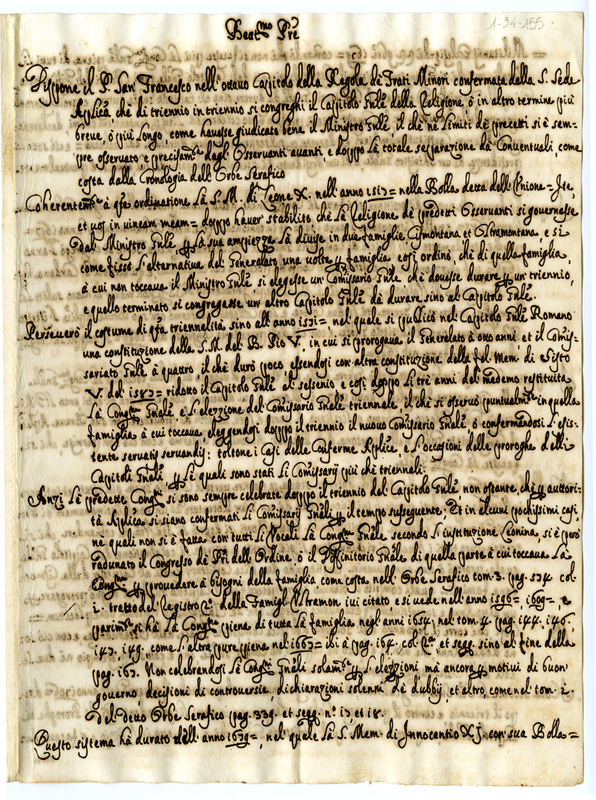 1-34-155
Beat.mo Pre
Dispone il P. San Francesco nell'ottavo Capitolo della Regola de Frati Minori confermata dalla S. Sede
Aplica, che di triennio in triennio si congreghi il Capitolo Gnle della Religione ò in altro termine più
breve, ò più longo, come havesse giudicato bene il Ministro Gnle, il che ne limiti de precetti si è sem-
pre osservato, e precisam.te dagli Osservanti avanti, e doppo la totale separazione da Conventuali, come
costa dalla Cronologia dell'Orbe Serafico
Coherentem.te à qta ordinatione La S. M. di Leone X. nell'anno 1517= nella Bolla detta dell'Unione= Ite,
et vos in vineam meam= doppo haver stabilito che La Religione de predetti Osservanti si governasse
dal Ministro Gnle, p La sua ampiezza La divise in due famiglie Cismontana et Oltramontana, e si
come fissò L'alternativa del Generalato una volta p famiglia, così ordinò, che di quella famiglia,
à cui non toccava il Ministro Gnle si elegesse un Comissario Gnle, che dovesse durare p un triennio,
e quello terminato si congregasse un altro Capitolo Gnle da durare sino al Capitolo Gnle.
Perseverò il costume di qta triennalità sino all'anno 1571= nel quale si publicò nel Capitolo Gnle Romano
una constituzione della S. M. del B. Pio V., in cui si prorogava il Generalato à otto anni, et il Comis-
sariato Gnle à quatro, il che durò poco essendosi con altra constituzione della fel. Mem. di Sisto
V. del 1587= ridotto il Capitolo Gnle al sessenio, e così doppo Li tre anni del medemo restituita
La Cong.ne Gnale, e L'elezzione del Comissario Gnale triennale, il che si osservò puntualm.te in quella
famiglia, à cui toccava, eleggendosi doppo il triennio il nuovo Comissario Gnale, ò confermandosi L'esis-
tente servatis servandis: toltone i casi delle Conferme Aplice, e L'occasioni delle proroghe delli
Capitoli Gnali, p Le quali sono stati Li Comissarij più che triennali.
Anzi Le predette Cong.ni si sono sempre celebrate doppo il triennio del Capitolo Gnle non ostante, che p auttori-
tà Aplica si siano confermati Li Comissarij Gnali p il tempo susseguente; Et in alcuni pochissimi casi,
ne quali non si è fatta con tutti Li Vocali La Cong.ne Gnale secondo L'instituzione Leonina, si è però
radunato il Congresso de Pri dell'Ordine ò il Diffinitorio Gnale di quella parte à cui toccava La
Cong.ne p provedere à bisogni della famiglia come costa nell'Orbe Serafico tom. 3. pag. 574. col.
1. tratto del Registro della Famigl. Ultramon. ivi citato e si vede nell'anno 1596= 1609=, e
parim.te si hà La Cong.ne piena di tutta La famiglia negli anni 1654. nel tom. 4. pag. 144. 146.
147. 149. come L'altra pure piena nel 1667= ibi à pag. 164. col. 2.a et segg. sino al fine della
pag. 167. Non celebrandosi La Cong.ne Gnali solam.te p L'elezzioni ma ancora p motivi di buon
governo, decisioni di controversie, dichiarazioni solenni de d'ubbij, et altro, come nel tom. 1.
del detto Orbe Serafico pag. 339. et segg. n.o 17. et 18.
Questo sistema hà durato dall'anno 1679=, nel quale La S. Mem. di Innocentio XJ. con sua Bolla=